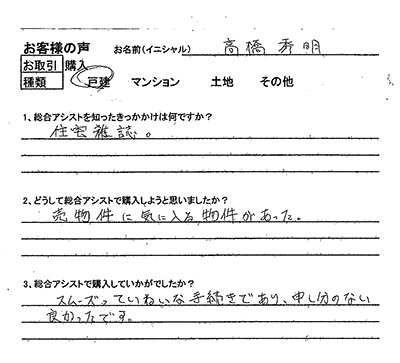 お客様の声 お名前(イニシャル) 高橋秀明
お取引 購入
種類 戸建 マンション 土地 その他
1、総合アシストを知ったきっかけは何ですか?
住宅雑誌。
2、どうして総合アシストで購入しようと思いましたか?
売物件に気に入る物件があった。
3、総合アシストで購入していかがでしたか?
スムーズっていねいな手続きであり、申し分のない
良かったです。